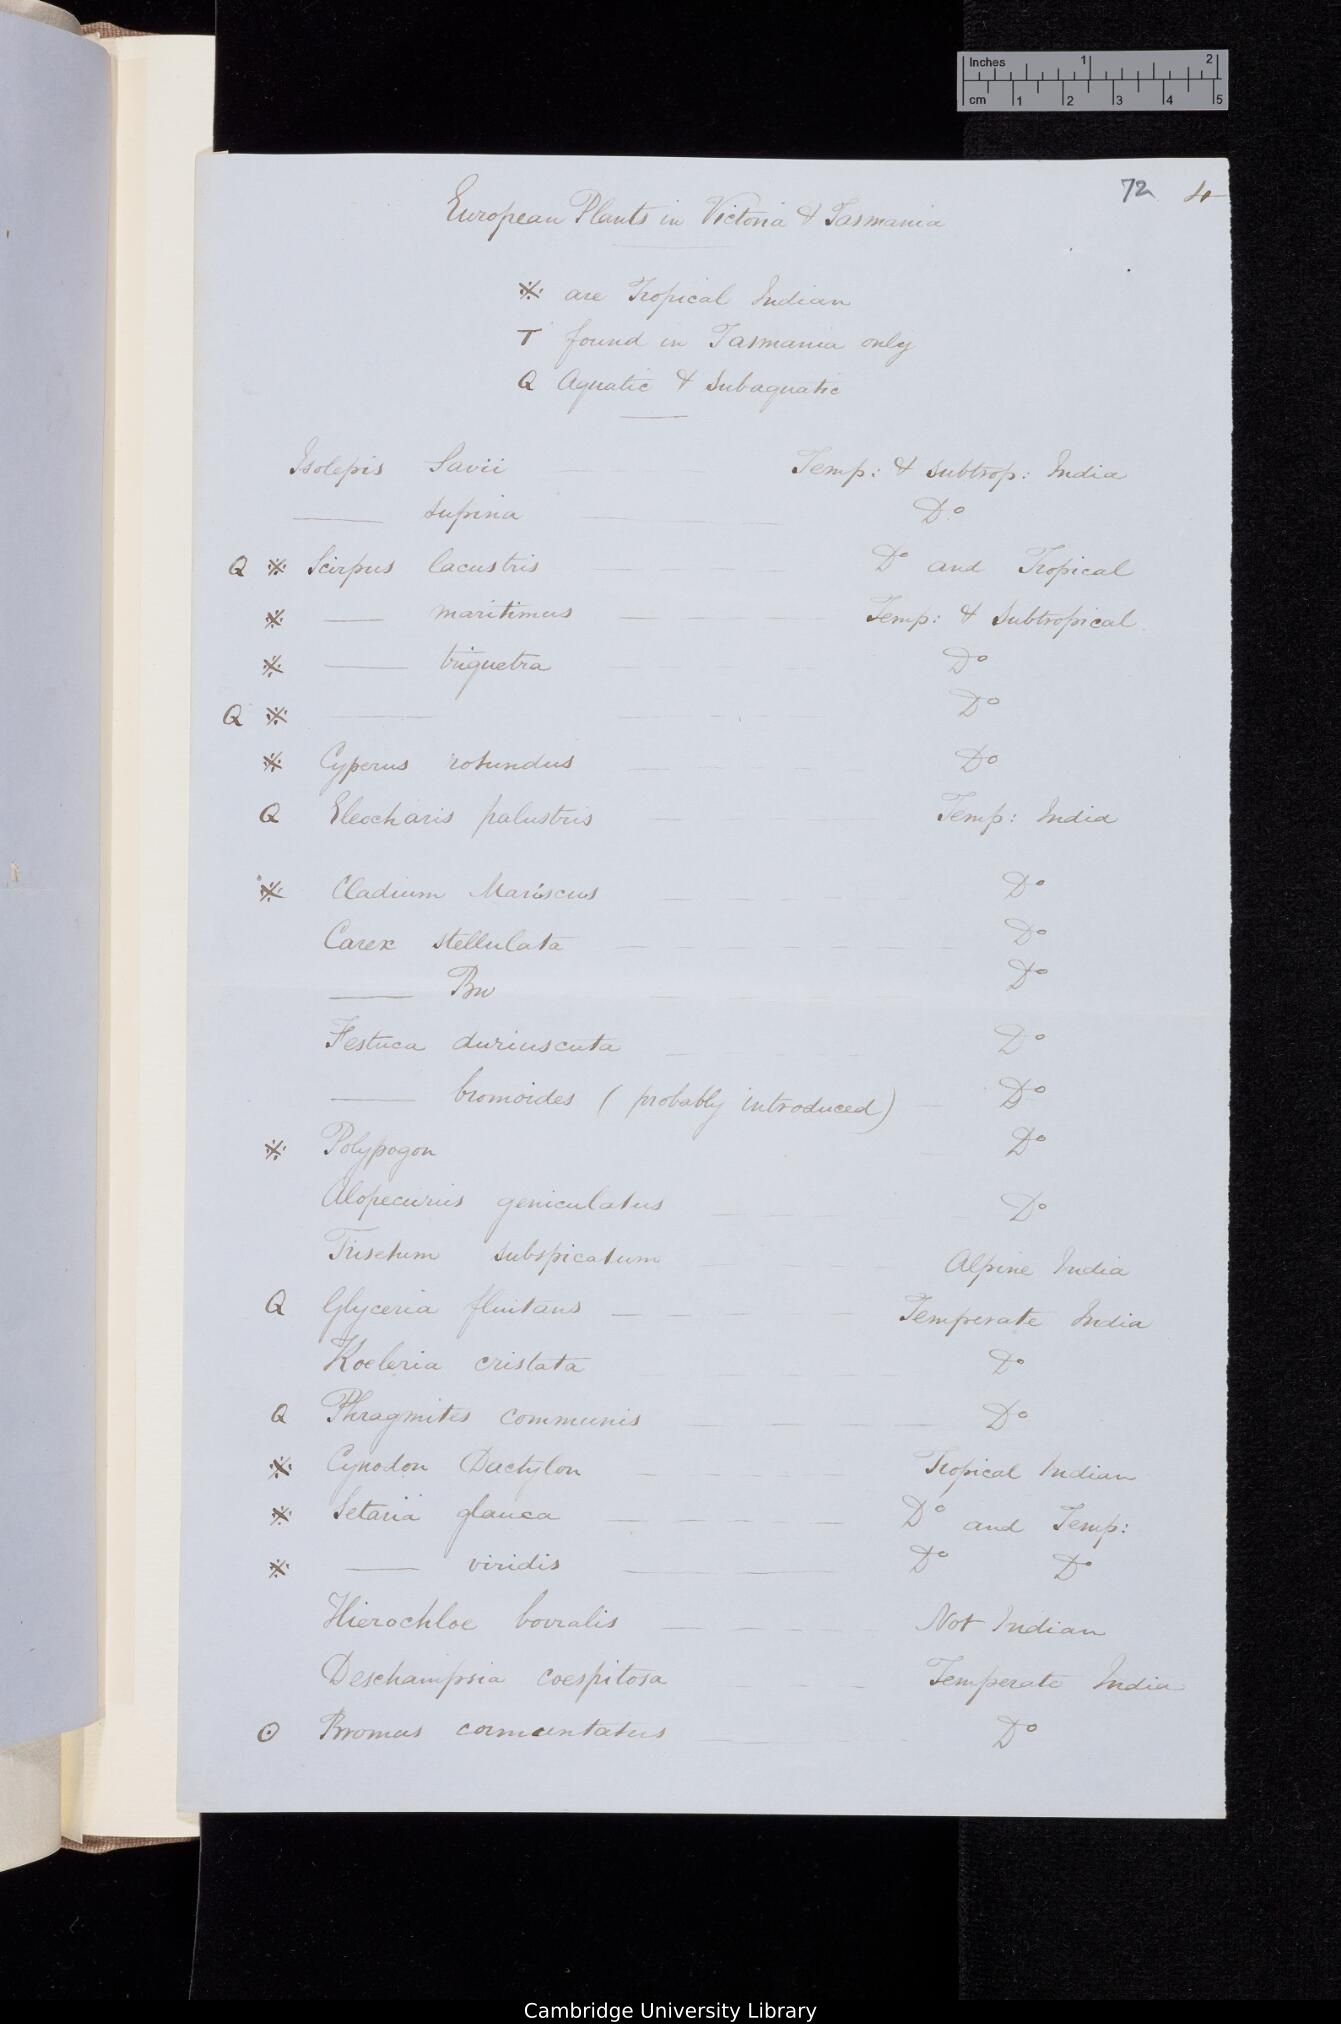 Inches 1 2
cm 1 2 3 4 5
72 4
European Plants in Victoria & Tasmania
※ are Tropical Indian
T found in Tasmania only
Q Aquatic & Subaquatic
Isolepis Savii — — — — Temp: & subtrop: India
—— supina — — — — Do
Q ※ Scirpus lacustris — — — — Do and Tropical
※ —— maritimus — — — — Temp: & Subtropical
※ —— triquetra — — — — Do
Q ※ —— — — — — Do
※ Cyperus rotundus — — — — Do
Q Eleocharis palustris — — — — Temp: India
※ Cladium Mariscus — — — — Do
Carex stellulata — — — — Do
—— Bu — — — — Do
Festuca duriuscuta — — — — Do
—— bromoides (probably introduced) — Do
※ Polypogon — Do
Alopecurus geniculatus — — — — Do
Trisetum subspicatum — — — — Alpine India
Q Glyceria fluitans — — — — Temperate India
Koeleria cristata — — — — Do
Q Phragmites communis — — — — Do
※ Cynodon Dactylon — — — — Tropical Indian
※ Setaria glauca — — — — Do and Temp:
※ —— viridis — — — Do Do
Hierochloe borralis — — — — Not Indian
Deschampsia coespitosa — — — — Temperate India
⊙ Bromus commentatus — — — — Do
Cambridge University Library